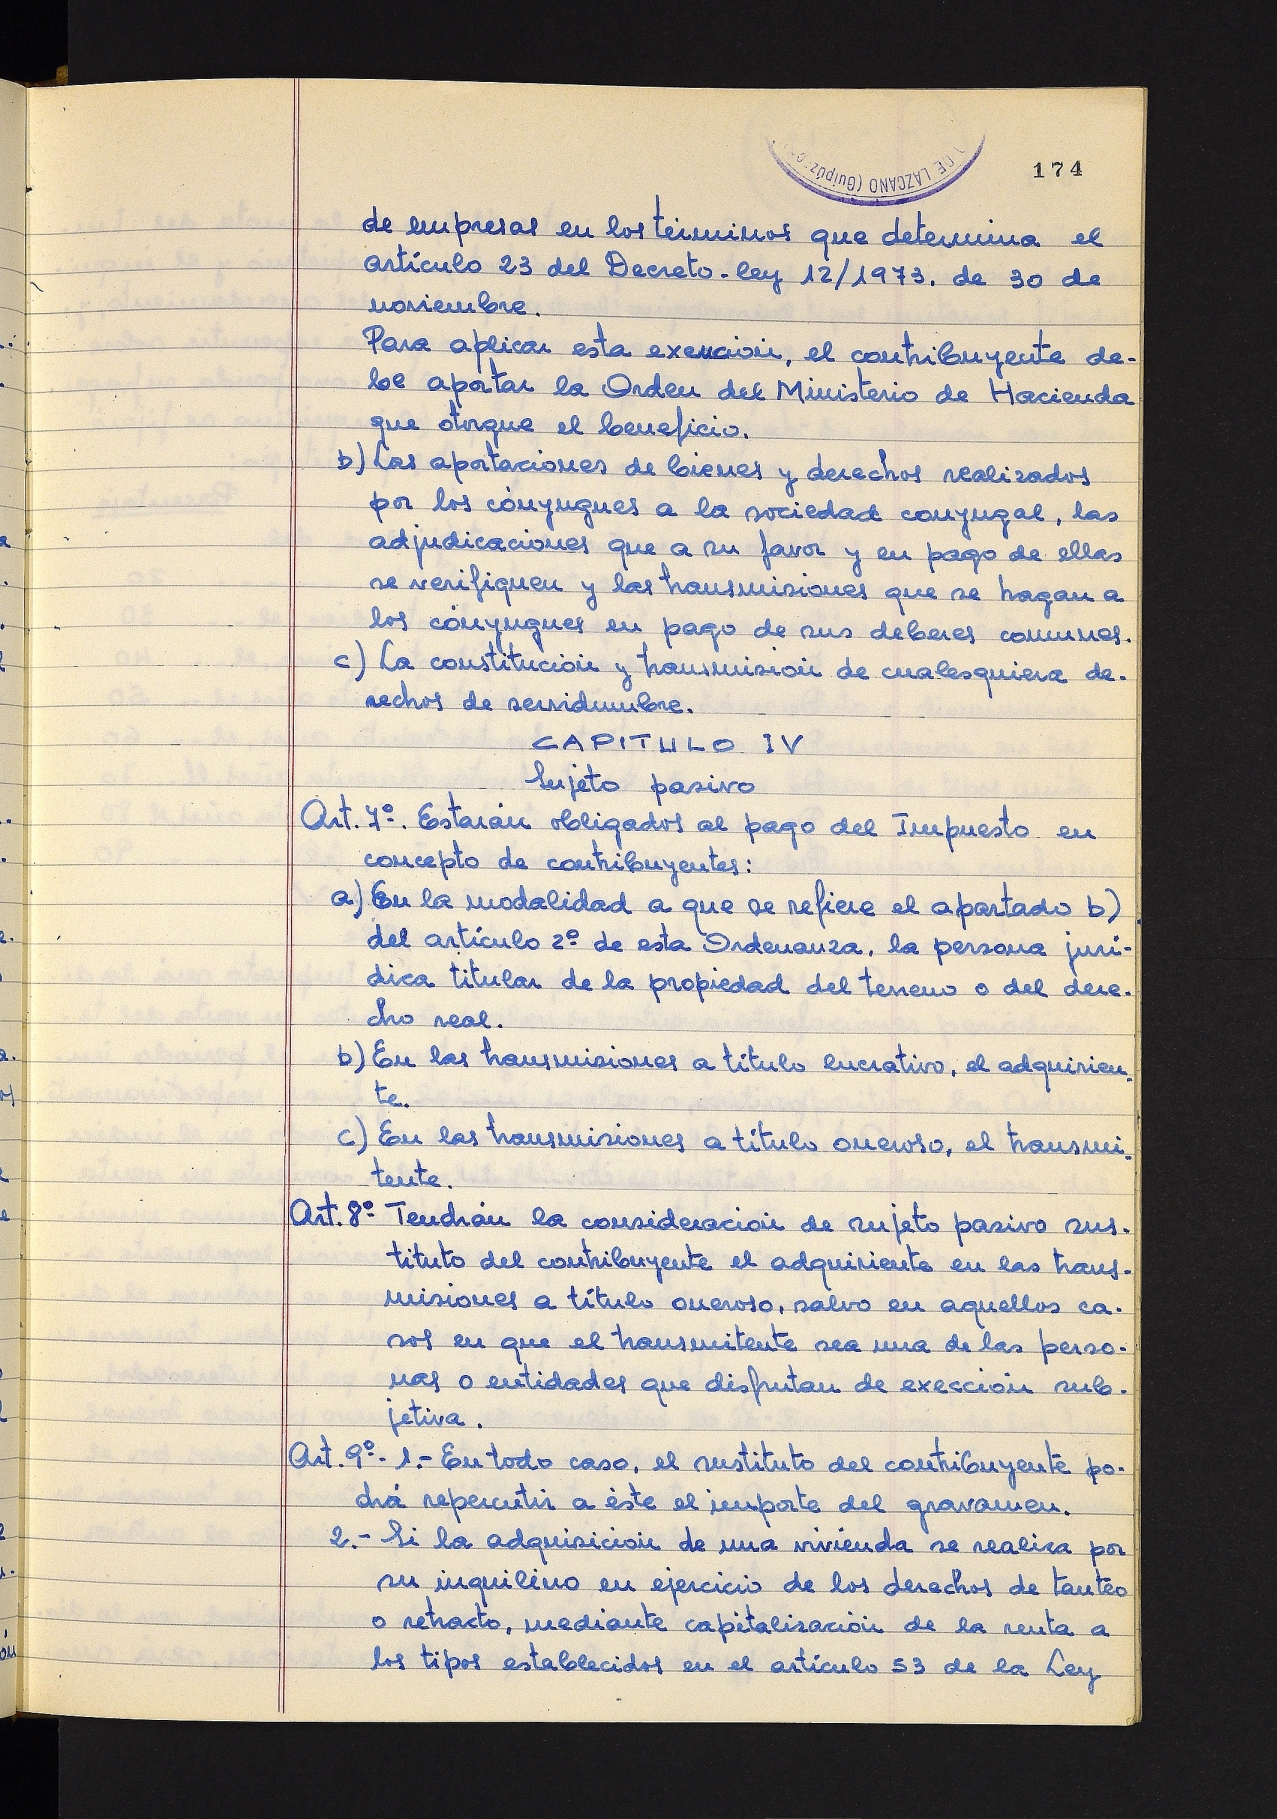 DE LAZCANO (Guipúzco
174
de empresas en los términos que determina el
artículo 23 del Decreto-ley 12/1973. de 30 de
noviembre.
Para aplicar esta exención, el contribuyente de-
be aportar la Orden del Ministerio de Hacienda
que otorgue el beneficio.
b) Las aportaciones de bienes y derechos realizados
por los cónyugues a la sociedad conyugal, las
adjudicaciones que a su favor y en pago de ellas
se verifiquen y las transmisiones que se hagan a
los cónyugues en pago de sus deberes comunes.
c) La constitución y transmisión de cualesquiera de-
rechos de servidumbre.
CAPITULO IV
Sujeto pasivo
Art. 7º. Estarán obligados al pago del Impuesto en
concepto de contribuyentes:
a) En la modalidad a que se refiere el apartado b)
del artículo 2º de esta Ordenanza, la persona jurí-
dica titular de la propiedad del terreno o del dere-
cho real.
b) En las transmisiones a título lucrativo, el adquirien-
te.
c) En las transmisiones a título oneroso, el transmi-
tente.
Art. 8º- Tendrán la consideración de sujeto pasivo sus-
tituto del contribuyente el adquiriente en las trans-
misiones a título oneroso, salvo en aquellos ca-
sos en que el transmitente sea una de las perso-
nas o entidades que disfrutan de exección sub-
jetiva.
Art. 9º- 1.- En todo caso, el sustituto del contribuyente po-
drá repercutir a éste el importe del gravamen.
2.- Si la adquisición de una vivienda se realiza por
su inquilino en ejercicio de los derechos de tanteo
o retracto, mediante capitalización de la renta a
los tipos establecidos en el artículo 53 de la Ley